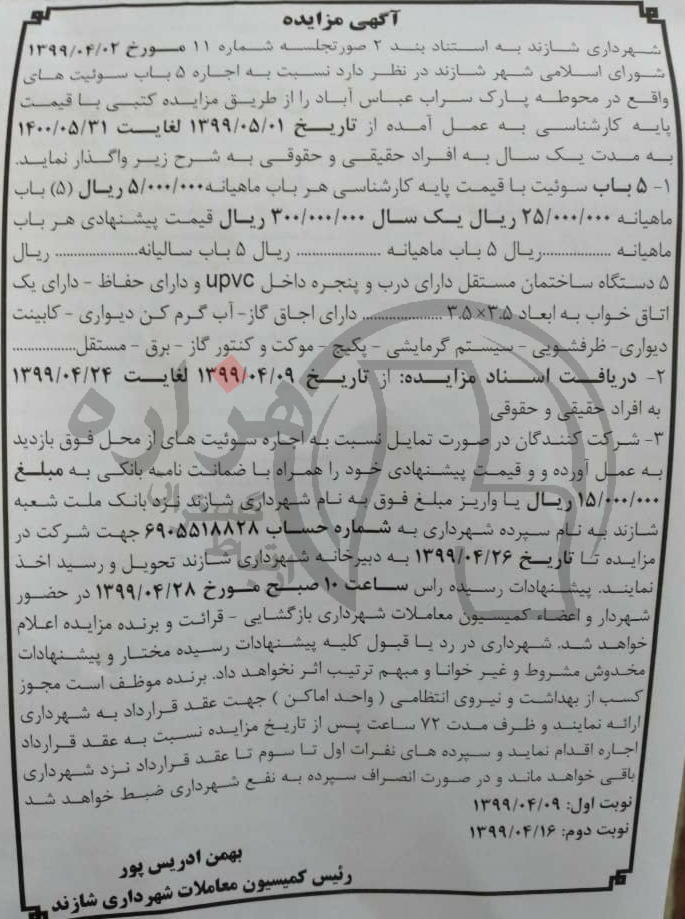 آگهی مزایده
شهرداری شازند به استناد بند ۲ صورتجلسه شماره ۱۱ مورخ ۱۳۹۹/۰۴/۰۲
شورای اسلامی شهر شازند در نظر دارد نسبت به اجاره ۵ باب سوئیت های
واقع در محوطه پارک سراب عباس آباد را از طریق مزایده کتبی با قیمت
پایه کارشناسی به عمل آمده از تاریخ ۱۳۹۹/۰۵/۰۱ لغایت ۱۴۰۰/۰۵/۳۱
به مدت یک سال به افراد حقیقی و حقوقی به شرح زیر واگذار نماید.
۱- ۵ باب سوئیت با قیمت پایه کارشناسی هر باب ماهیانه ۵/۰۰۰/۰۰۰ ریال (۵) باب
ماهیانه ۲۵/۰۰۰/۰۰۰ ریال یک سال ۳۰۰/۰۰۰/۰۰۰ ریال قیمت پیشنهادی هر باب
ماهیانه ................. ریال ۵ باب ماهیانه ..................... ریال ۵ باب سالیانه..................... ریال
۵ دستگاه ساختمان مستقل دارای درب و پنجره داخل upvc و دارای حفاظ - دارای یک
اتاق خواب به ابعاد ۳.۵×۳.۵ .................... دارای اجاق گاز- آب گرم کن دیواری - کابینت
دیواری- ظرفشویی - سیستم گرمایشی - پکیج - موکت و کنتور گاز - برق - مستقل................
۲- دریافت اسناد مزایده: از تاریخ ۱۳۹۹/۰۴/۰۹ لغایت ۱۳۹۹/۰۴/۲۴
به افراد حقیقی و حقوقی
۳- شرکت کنندگان در صورت تمایل نسبت به اجاره سوئیت های از محل فوق بازدید
به عمل آورده و و قیمت پیشنهادی خود را همراه با ضمانت نامه بانکی به مبلغ
۱۵/۰۰۰/۰۰۰ ریال یا واریز مبلغ فوق به نام شهرداری شازند نزد بانک ملت شعبه
شازند به نام سپرده شهرداری به شماره حساب ۶۹۰۵۵۱۸۸۲۸ جهت شرکت در
مزایده تا تاریخ ۱۳۹۹/۰۴/۲۶ به دبیرخانه شهرداری شازند تحویل و رسید اخذ
نمایند. پیشنهادات رسیده راس ساعت ۱۰ صبح مورخ ۱۳۹۹/۰۴/۲۸ در حضور
شهردار و اعضاء کمیسیون معاملات شهرداری بازگشایی - قرائت و برنده مزایده اعلام
خواهد شد. شهرداری در رد یا قبول کلیه پیشنهادات رسیده مختار و پیشنهادات
مخدوش مشروط و غیر خوانا و مبهم ترتیب اثر نخواهد داد. برنده موظف است مجوز
کسب از بهداشت و نیروی انتظامی ( واحد اماکن ) جهت عقد قرارداد به شهرداری
ارائه نمایند و ظرف مدت ۷۲ ساعت پس از تاریخ مزایده نسبت به عقد قرارداد
اجاره اقدام نماید و سپرده های نفرات اول تا سوم تا عقد قرارداد نزد شهرداری
باقی خواهد ماند و در صورت انصراف سپرده به نفع شهرداری ضبط خواهد شد
نوبت اول: ۱۳۹۹/۰۴/۰۹
نوبت دوم: ۱۳۹۹/۰۴/۱۶
بهمن ادریس پور
رئیس کمیسیون معاملات شهرداری شازند
هزاره